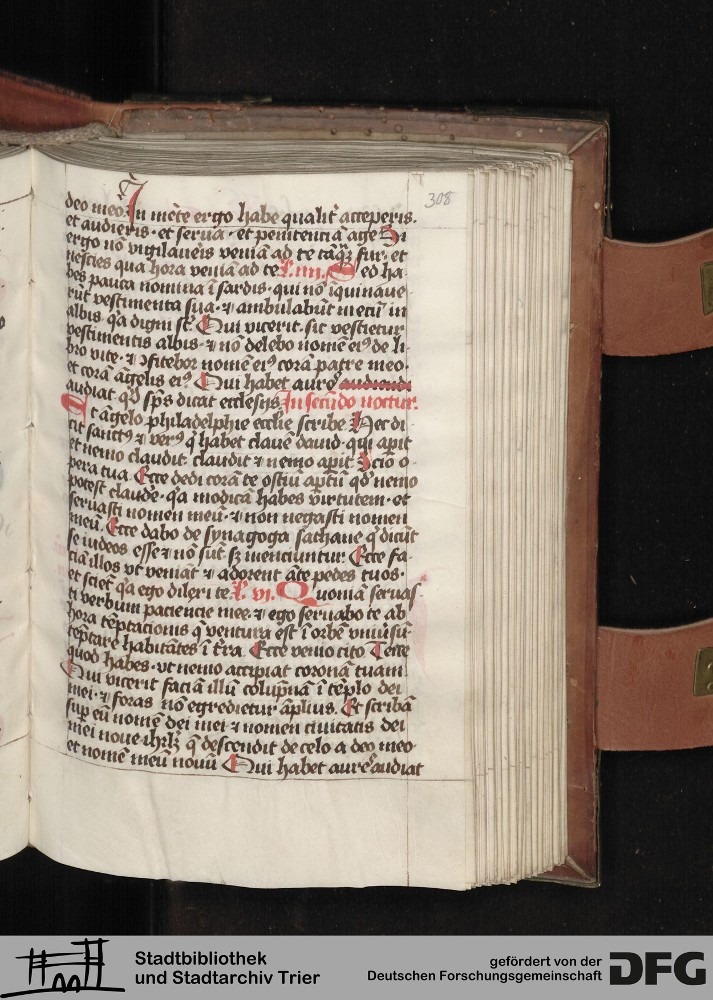 308
deo meo. In mēte ergo habe qualit̄ acceperis.
et audieris · et serua · et penitenciā age Si
ergo nō vigilaueis veniā ad te tāq̄ȝ fur · et
nescies qua hora veniā ad te L. iiii. Sed ha
bes pauca nomina ī sardis · qui nō īquinaue
rūt vestimenta sua · ⁊ ambulabūt mecū in
albis q̄a digni st̄. Qui vicerit · sic vestietur
vestimentis albis · ⁊ nō delebo nomē eiꝰ de li-
bro vite · ⁊ ꝯfitebor nomē eiꝰ corā patre meo ·
et corā āgelis eiꝰ. Qui habet aurē audiendi
audiat qd̄ sp̄s dicat ecclesijs In secūdo noctur.
Et āgelo philadelphie eccl̄ie scribe Hec di-
cit sanctꝰ ⁊ verꝰ q̄ habet clauē dauid · qui apit
et nemo claudit · claudit ⁊ nemo apit Scio o-
pera tua. Ecce dedi corā te ostiū aptū qd̄ nemo
potest claude · q̄a modicā habes virtutem · et
seruasti nomen meū · ⁊ non negasti nomen
meū. Ecce dabo de synagoga sathane q̄ dicūt
se iudeos esse ⁊ nō sūt sȝ menciuntur. Ecce fa-
ciā illos vt veniāt ⁊ adorent āte pedes tuos ·
et sciēt q̄a ego dilexi te L. vi. Quoniā seruas-
ti verbum paciencie mee · ⁊ ego seruabo te ab
hora tēptacionis q̄ ventura est ī orbē vniūsū
tēptare habitātes ī t̄ra. Ecce venio cito Tene
quod habes · vt nemo accipiat coronā tuam
Qui vicerit faciā illū colūpnā ī tēplo dei
mei · ⁊ foras nō egredietur āplius. Et scribā
sup eū nomē dei mei ⁊ nomen ciuitatis dei
mei noue ihrlȝ q̄ descendit de celo a deo meo
et nomē meū nouū Qui habet aurē audiat
Stadtbibliothek
und Stadtarchiv Trier
gefördert von der
Deutschen Forschungsgemeinschaft
DFG